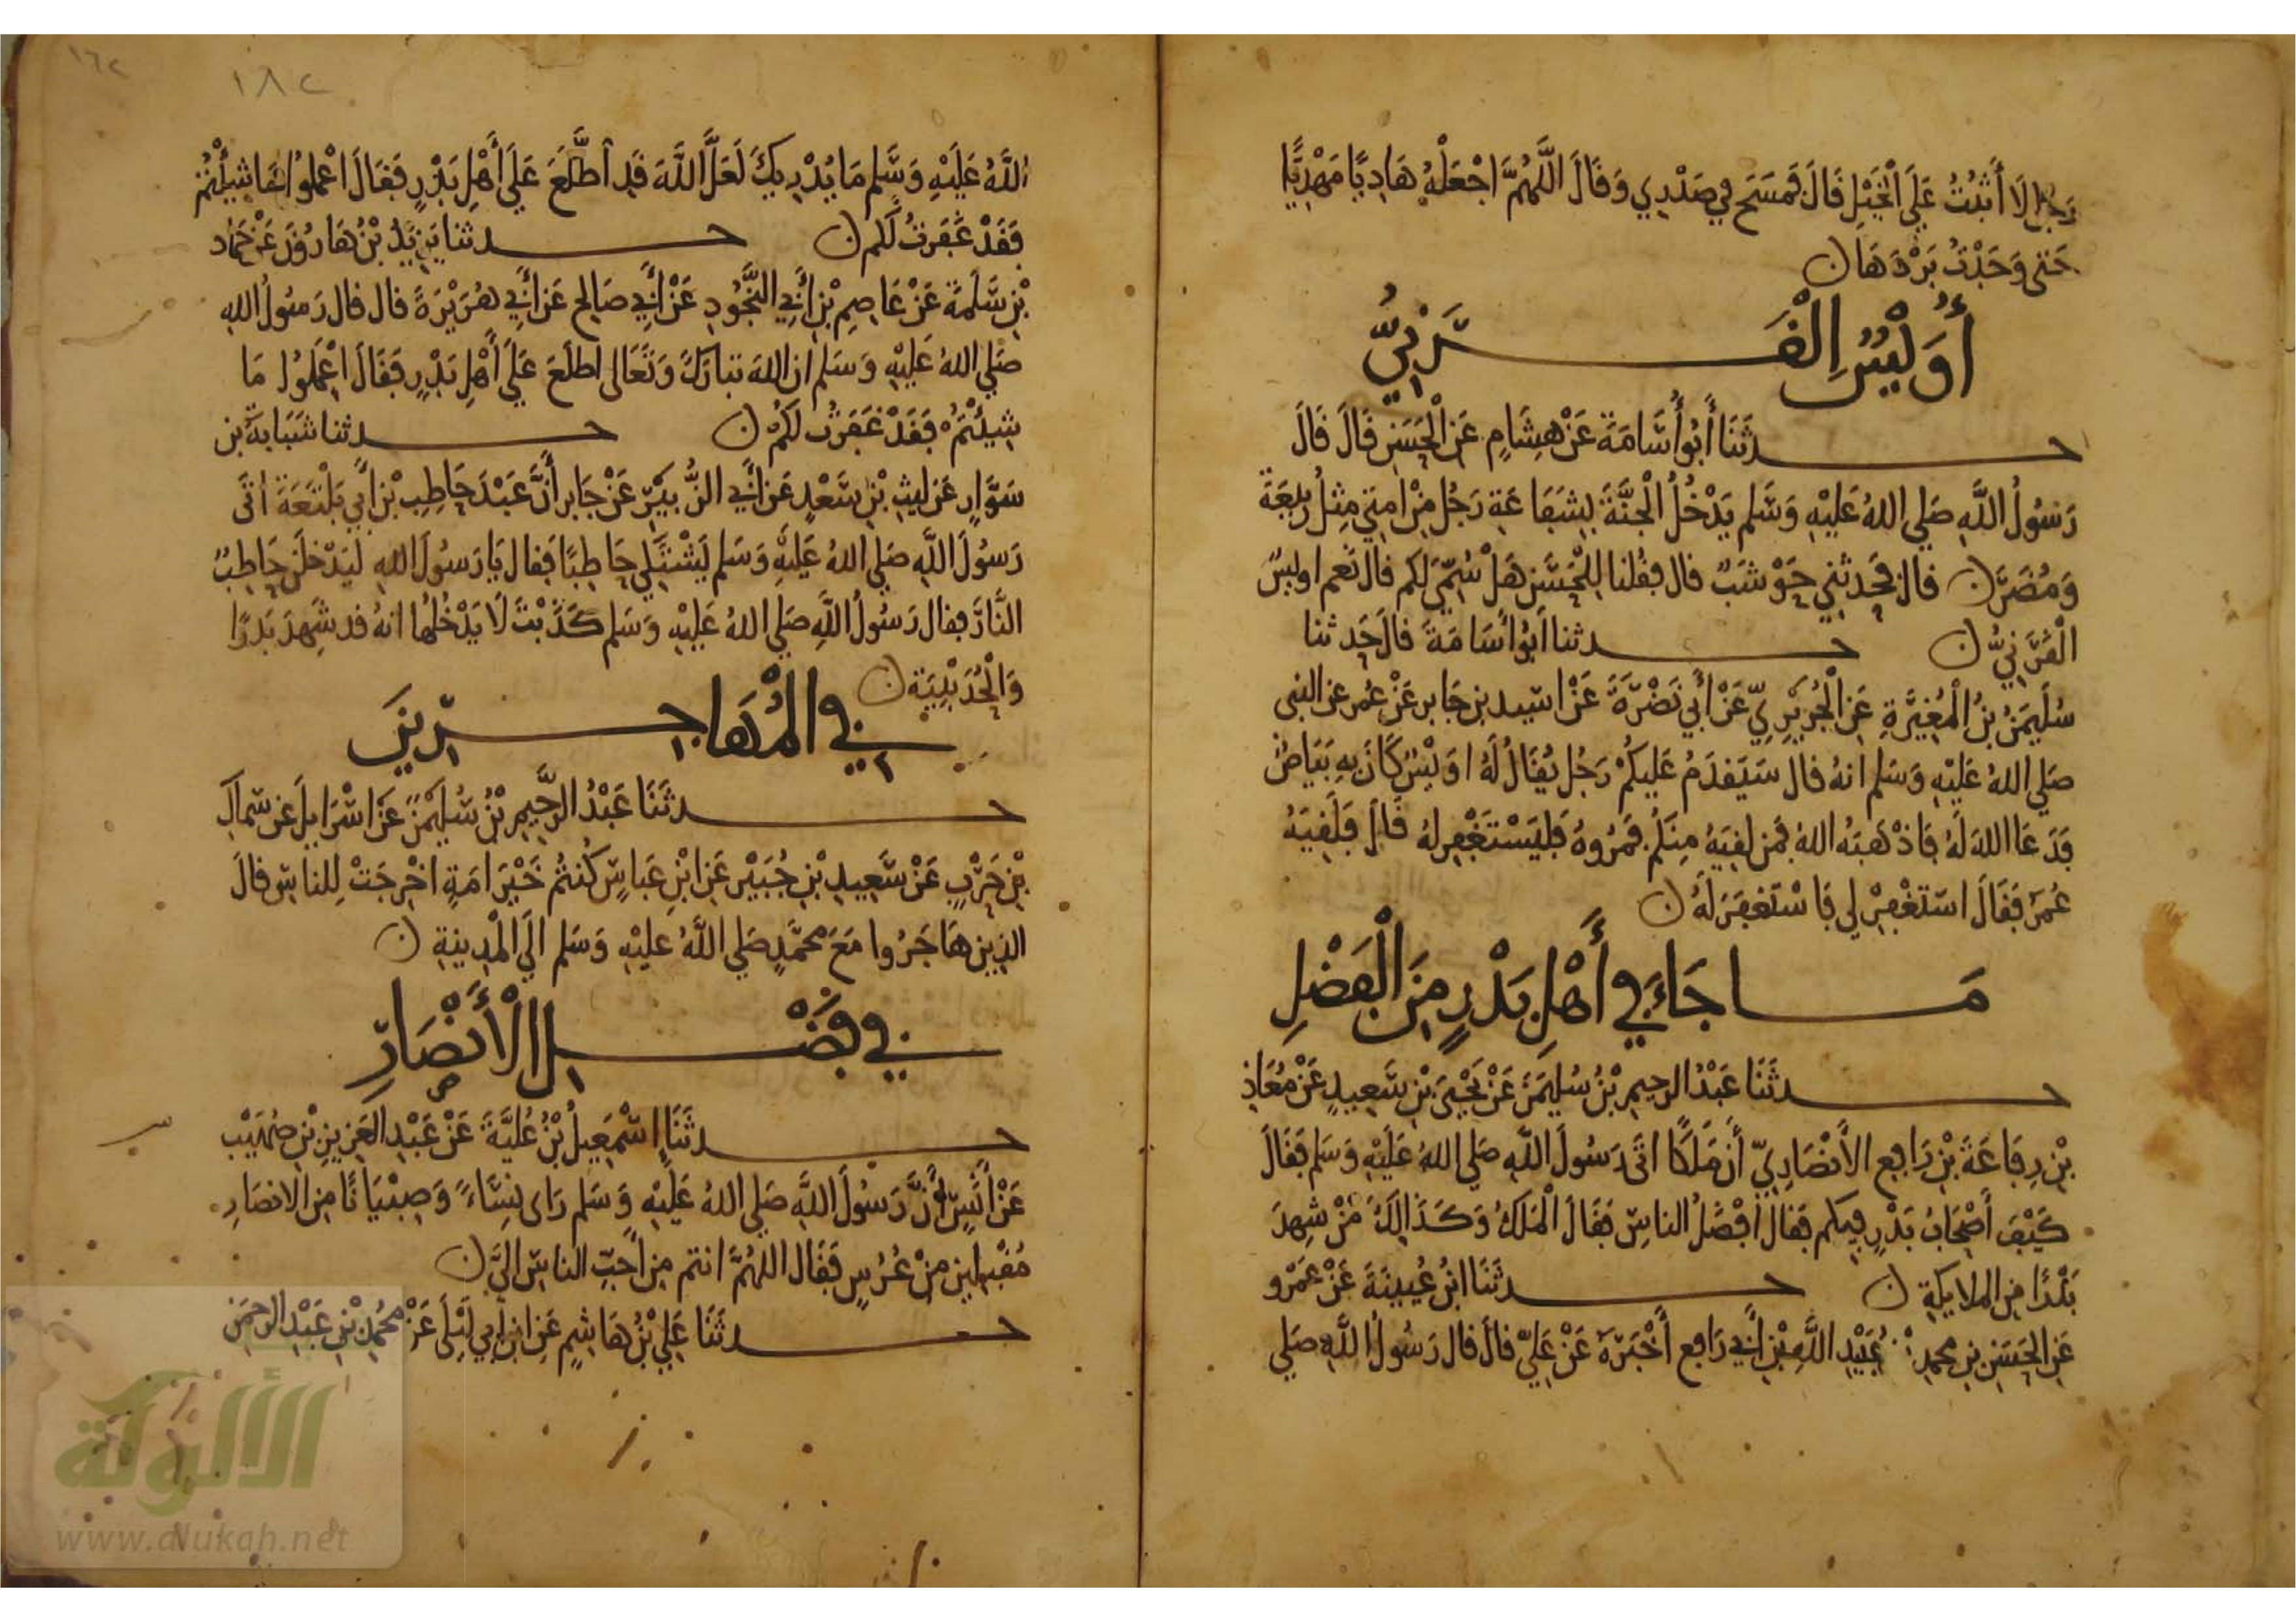 رَجُلًا لَا أَثْبُتُ عَلَى الْخَيْلِ قَالَ فَمَسَحَ فِي صَدْرِي وَقَالَ اللَّهُمَّ اجْعَلْهُ هَادِيًا مَهْدِيًّا
حَتى وَجَدْتُ بَرْدَهَا ن
أُوَيْسُ الْقَرَنِيُّ
حدثَنَا أَبُو أُسَامَةَ عَنْ هِشَامٍ عَنِ الْحَسَنِ قَالَ قَالَ
رَسُولُ اللَّهِ صَلي اللهُ عَلَيْهِ وَسَّلم يَدْخُلُ الْجَنَّةَ بِشَفَاعَةِ رَجُلٍ مِنْ امتِي مِثْلُ رَبِيعَةَ
وَمُضَرَ ن قال فحَدثني حَوْشَبٌ قال فقُلنا لِلْحَسَنِ هَلْ سُمِّيَ لَكم قال نَعم اويسٌ
الْقَرَنِيُّ ن حدثنا أَبُو أُسَامَةَ قالَ حَدثنا
سُلَيمَنُ بْنُ الْمُغِيَرَةِ عَنِ الْجُرَيْرِيِّ عَنْ أَبِي نَضْرَةَ عَنْ اسَيد بن جَابر عَنْ عُمر عَن النبي
صَلي اللهُ عَلَيْهِ وَسَلم انهُ قال سَيَقدَمُ عَلَيكُمْ رَجُل يُقَالُ لَهُ اوَيْسٌ كَانَ بِهِ بَيَاضٌ
فَدَعَا اللهَ لَهُ فَاذْهَبَهُ اللهُ فَمن لقيَهُ مِنكُم فَمُرُوهُ فَليَسْتَغْفِر لهُ قَالَ فَلَقِيَهُ
عُمَرُ فَقَالَ استَغْفِرْ لي فَاسْتَغفَرَ لَهُ ن
مَا جَاءَ فِي أَهْلِ بَدْرٍ مِنَ الْفَضْلِ
حدثَنَا عَبْدُ الرحِيمِ بْنُ سُليمَنَ عَنْ يَحْيَى بْنِ سَعِيدٍ عَنْ مُعَاذِ
بْنِ رِفَاعَةَ بْنِ رَافِعٍ الأَنْصَارِيِّ أَنَّ مَلَكًا اتَى رَسُولَ اللهِ صَلي اللهُ عَلَيْهِ وَسَلم فَقَالَ
كَيْفَ أَصْحَابُ بَدْرٍ فِيكم فَقَالَ أَفْضَلُ الناسِ فَقَالَ الْمَلَكُ وَكَذَالِكَ مَنْ شَهِدَ
بَدْرًا مِنَ الملايكَةِ ن حدثَنَا ابْنُ عُيينَةَ عَنْ عَمْرٍو
عَنِ الحَسَنِ بن محمدٍ عُبَيْد اللَّهِ بْنَ أَبِي رَافِع أَخْبَرَهُ عَنْ عَلِيٍّ قالَ قال رَسُولُ اللَّهِ صَلي
١٦٢
١٨٢
اللَّهُ عَلَيْهِ وَسَّلم مَا يُدْرِيكَ لَعَلَّ اللَّهَ قَدِ اطَّلَعَ عَلَى أَهْلِ بَدْرٍ فَقَالَ اعْمَلُوا مَا شِيْتُمْ
فَقَدْ غَفَرتُ لَكم ن حدثنا يَزِيدُ بْنُ هَارُونَ عَنْ حَماد
بْنِ سَلَمَةَ عَنْ عَاصِمِ بْنِ أَبِي النَّجُودِ عَنْ أَبِي صَالِحٍ عَن أَبِي هُرَيْرَةَ قال قال رَسُولُ اللهِ
صَلي اللهُ عَلَيْهِ وَسَلم ان اللهَ تبارَكَ وَتَعَالى اطلَعَ عَلَى أَهْلِ بَدْرٍ فَقَالَ اعْمَلُوا مَا
شِيئْتُمْ فَقَدْ غَفَرْتُ لَكُمْ ن حدثنا شَبَابَةُ بن
سَوَّارٍ عَن لَيثِ بْنِ سَعْدٍ عَن أَبِي الزُّبَيْرِ عَنْ جَابرٍ أَنَّ عَبْدَ حَاطِبِ بْنِ أَبِي بَلْتَعَةَ اتَى
رَسُولَ اللَّهِ صَلي اللهُ عَلَيْهِ وَسَلم يَشْتَكِي حَاطِبًا فَقال يَا رَسُولَ اللهِ لَيَدْخلَنَّ حَاطِبٌ
النَّارَ فقال رَسُولُ اللَّهِ صَلي اللهُ عَلَيْهِ وَسَلم كَذَبْتَ لَا يَدْخُلُهَا انهُ قد شَهِدَ بَدرًا
وَالْحُدَيْبِيَةَ ن
فِي الْمُهَاجِرِينَ
حدثَنَا عَبْدُ الرَّحِيمِ بْنُ سُلَيمَنَ عَنْ اسْرَايِلَ عَن سِمَاكِ
بْنِ حَرْبٍ عَنْ سَعِيدِ بْنِ جُبَيْرٍ عَنِ ابْنِ عَباسٍ كُنتُم خَيْرَ امَةٍ اخْرِجَتْ لِلناسِ قالَ
الذِين هَاجَرُوا مَعَ محمَّدٍ صَلي اللَّهُ عليْهِ وَسَلم الَى الْمَدِينةِ ن
فِي فَضْلِ الْأَنْصَارِ
حدثَنَا اسْمَعِيلُ بْنُ عُلَيَّةَ عَنْ عَبْدِ العَزِيزِ بْنِ صُهَيْبٍ
عَنْ أَنَسٍ أَنَّ رَسُولَ اللَّهِ صَلي اللهُ عَلَيْهِ وَسَلم رَاى نِسَاءً وَصِبْيَانًا مِن الانصَارِ
مُقْبِلِين مِنْ عُرُسٍ فَقَال اللهُمَّ انتم مِن أَحَبِّ الناسِ الَيَّ ن
حدثَنَا عَلِيُ بْنُ هَاشِمٍ عَنِ ابْنِ أَبِي لَيْلَى عَنْ مُحمد بْنِ عَبْدِ الرحمَنِ
الألوكة
www.alukah.net